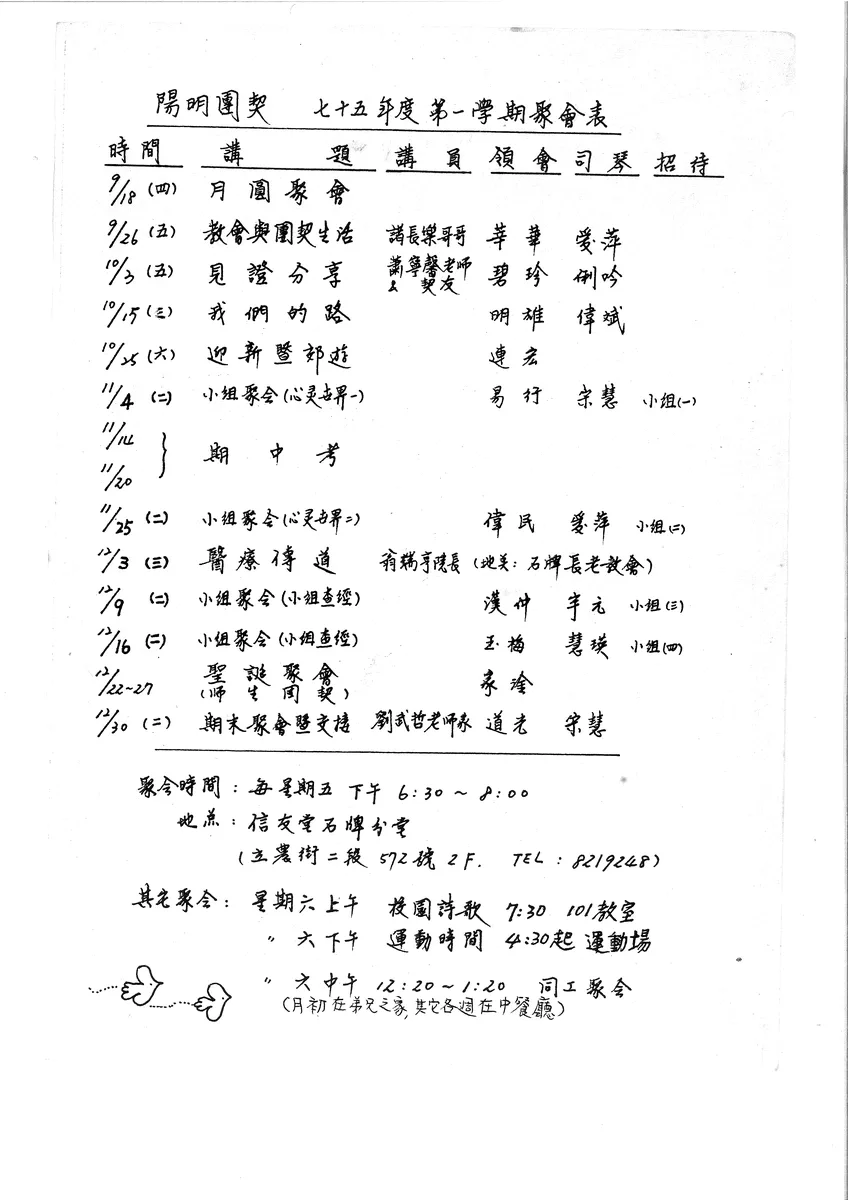 陽明團契 七十五年度第一學期聚會表
時間 講題 講員 領會 司琴 招待
9/18 (四) 月圓聚會
9/26 (五) 教會與團契生活 諸長樂哥哥 華華 爱萍
10/3 (五) 見證分享 蕭寧馨老師 & 契友 碧珍 俐吟
10/15 (三) 我們的路 明雄 偉斌
10/25 (六) 迎新暨郊遊 連宏
11/4 (二) 小組聚会(心灵世界一) 易行 宋慧 小組(一)
11/14
11/20 } 期中考
11/25 (二) 小組聚会(心灵世界二) 偉民 爱萍 小組(二)
12/3 (三) 醫療傳道 翁瑞亨院長 (地点: 石牌長老教會)
12/9 (二) 小組聚会(小組查經) 漢仲 宇元 小組(三)
12/16 (二) 小組聚会(小組查經) 玉梅 慧瑛 小組(四)
12/22~27 聖誕聚會
(师生团契) 家淦
12/30 (二) 期末聚會暨交接 劉武哲老師家 道光 宋慧
聚会時間: 每星期五下午 6:30~8:00
地点: 信友堂石牌分堂
(立農街二段 572號 2F. TEL: 8219248)
其它聚会: 星期六上午 校園詩歌 7:30 101教室
〃 六下午 運動時間 4:30起 運動場
〃 六中午 12:20~1:20 同工聚会
(月初在弟兄之家,其它各週在中餐廳)